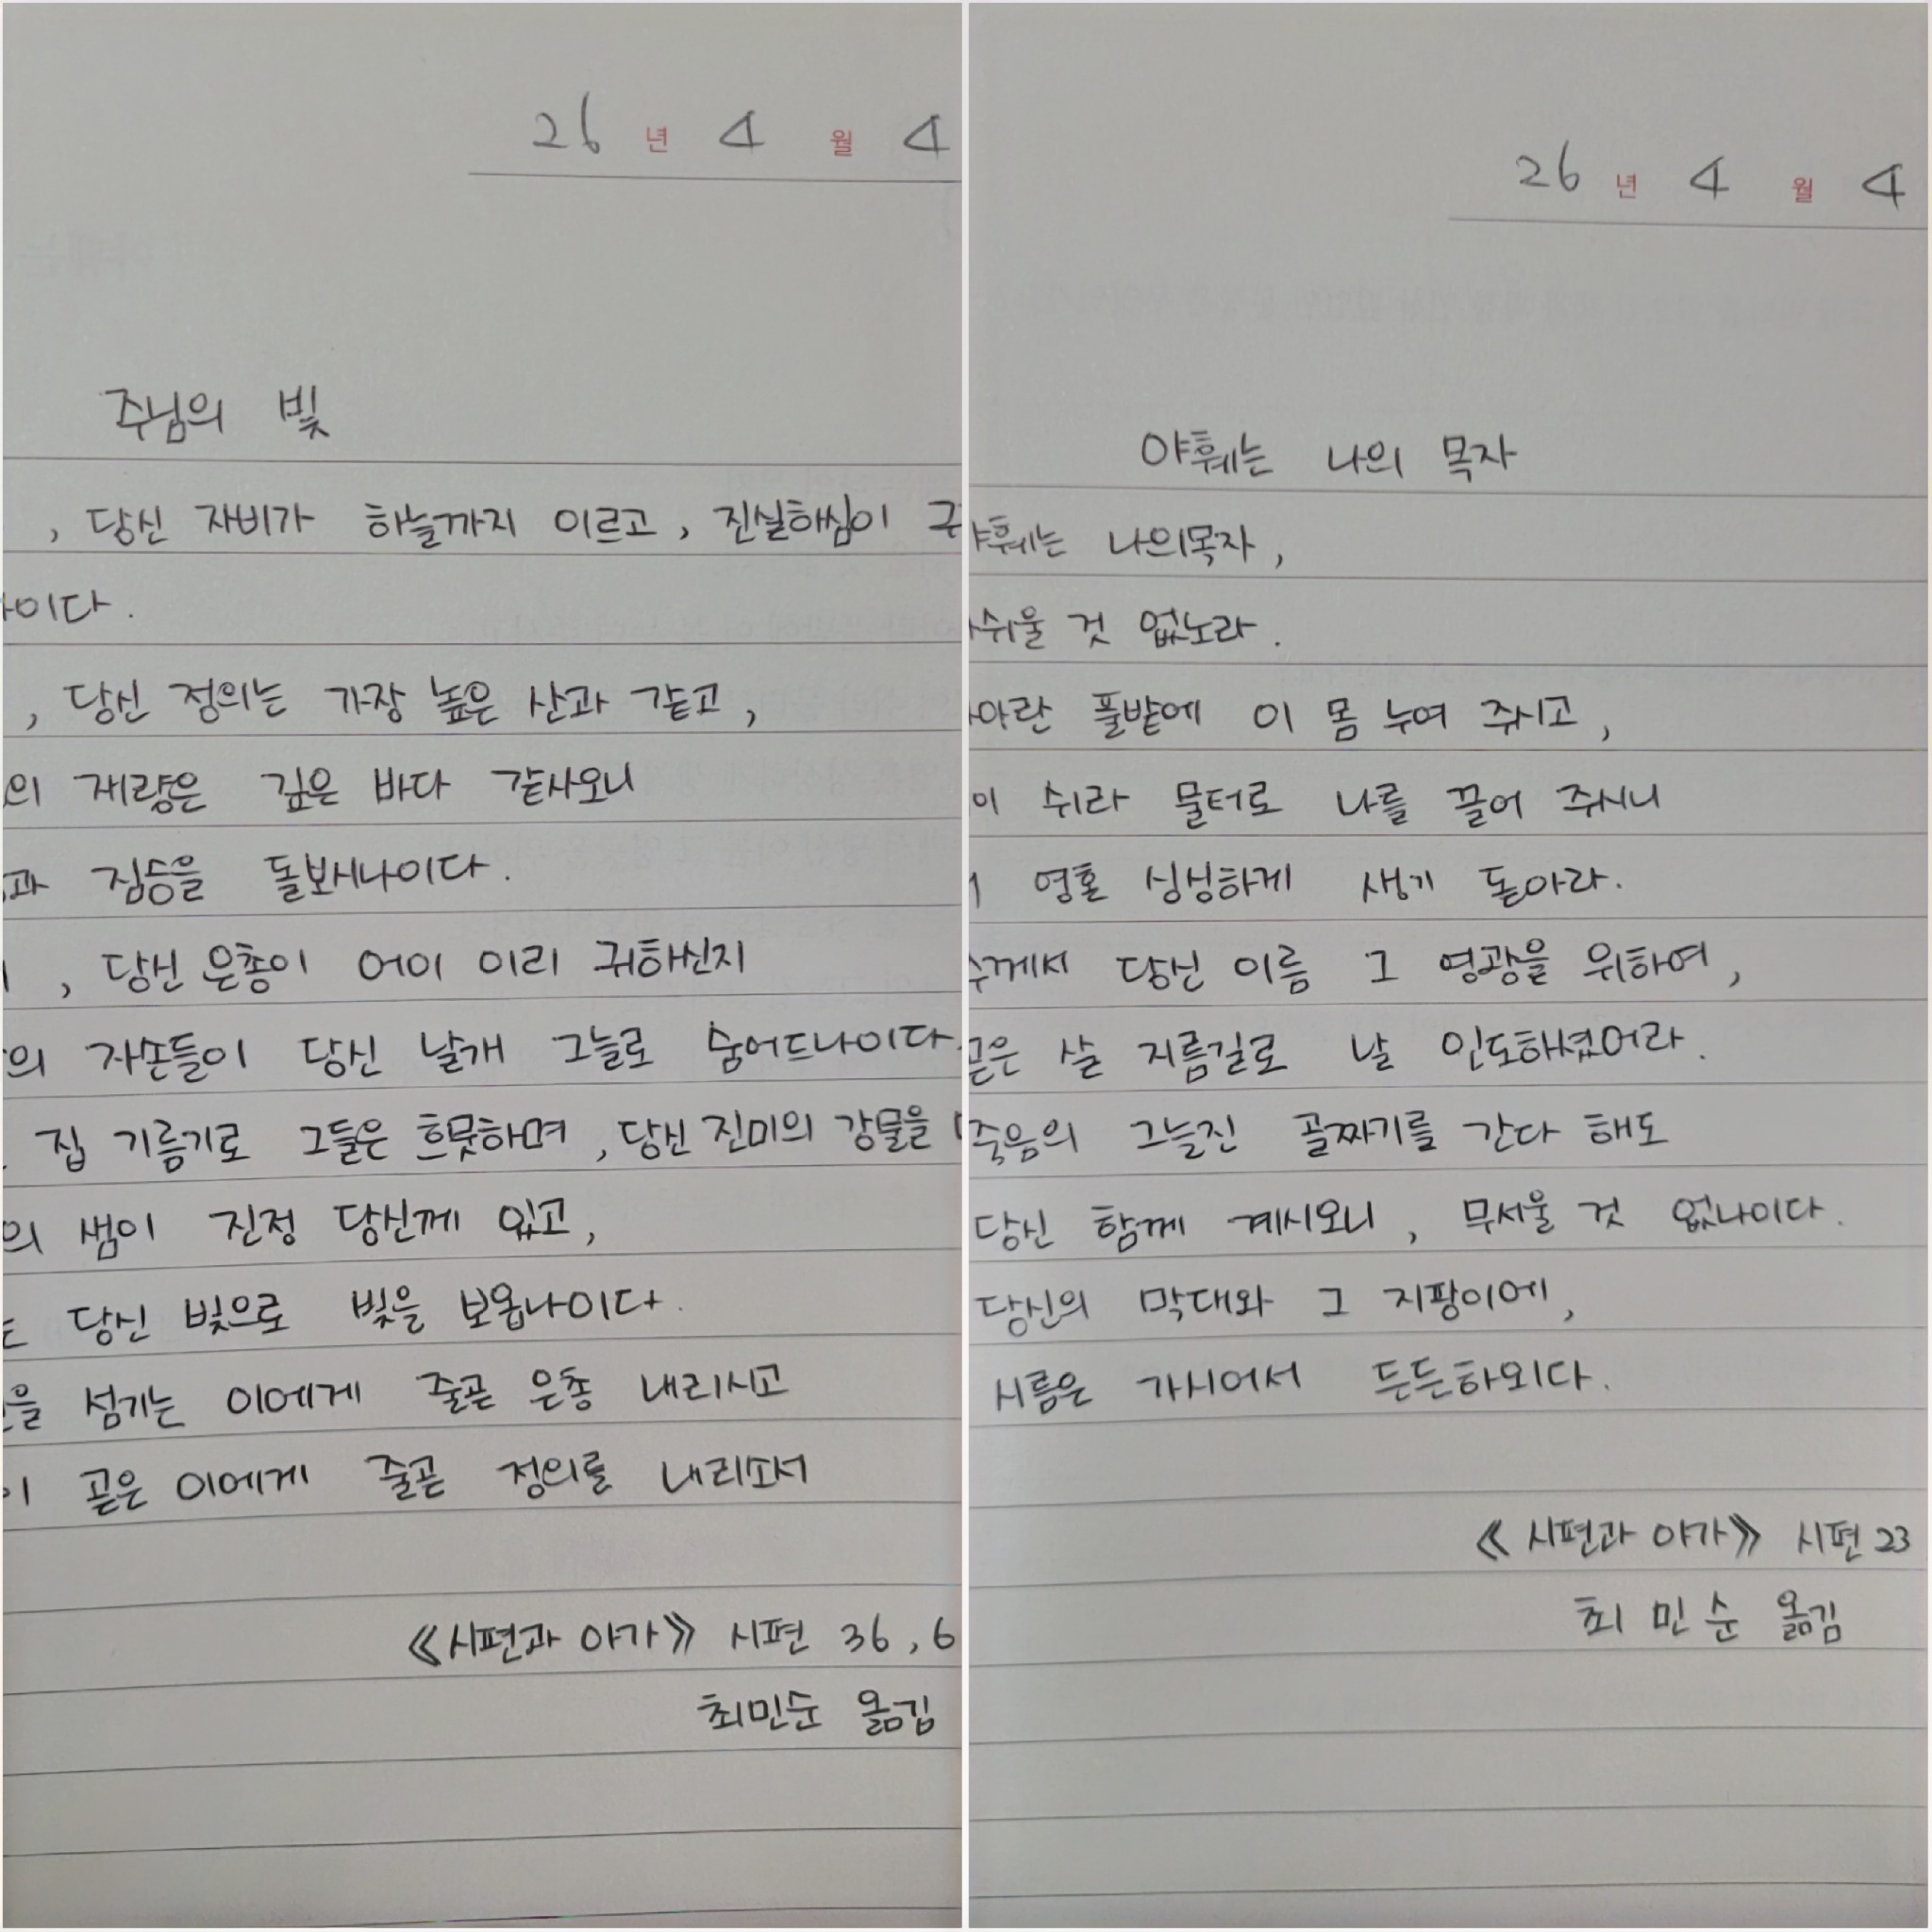 26 년 4 월 4
주님의 빛
, 당신 자비가 하늘까지 이르고, 진실하심이
이다.
, 당신 정의는 가장 높은 산과 같고,
의 재량은 깊은 바다 같사오니
과 짐승을 돌보시나이다.
, 당신 은총이 어이 이리 귀하신지
의 자손들이 당신 날개 그늘로 숨어드나이다.
집 기름기로 그들은 흐뭇하며, 당신 진미의 강물을
의 샘이 진정 당신께 있고,
당신 빛으로 빛을 보옵나이다.
을 섬기는 이에게 줄곧 은총 내리시고
이 곧은 이에게 줄곧 정의를 내리소서
《시편과 아가》 시편 36, 6
최민순 옮김
26 년 4 월 4
야훼는 나의 목자
야훼는 나의목자,
쉬울 것 없노라.
아란 풀밭에 이 몸 누여 주시고,
이 쉬라 물터로 나를 끌어 주시니
영혼 싱싱하게 생기 돋아라.
께서 당신 이름 그 영광을 위하여,
곧은 살 지름길로 날 인도하셨어라.
죽음의 그늘진 골짜기를 간다 해도
당신 함께 계시오니, 무서울 것 없나이다.
당신의 막대와 그 지팡이에,
시름은 가시어서 든든하외다.
《시편과 아가》 시편 23
최 민 순 옮김